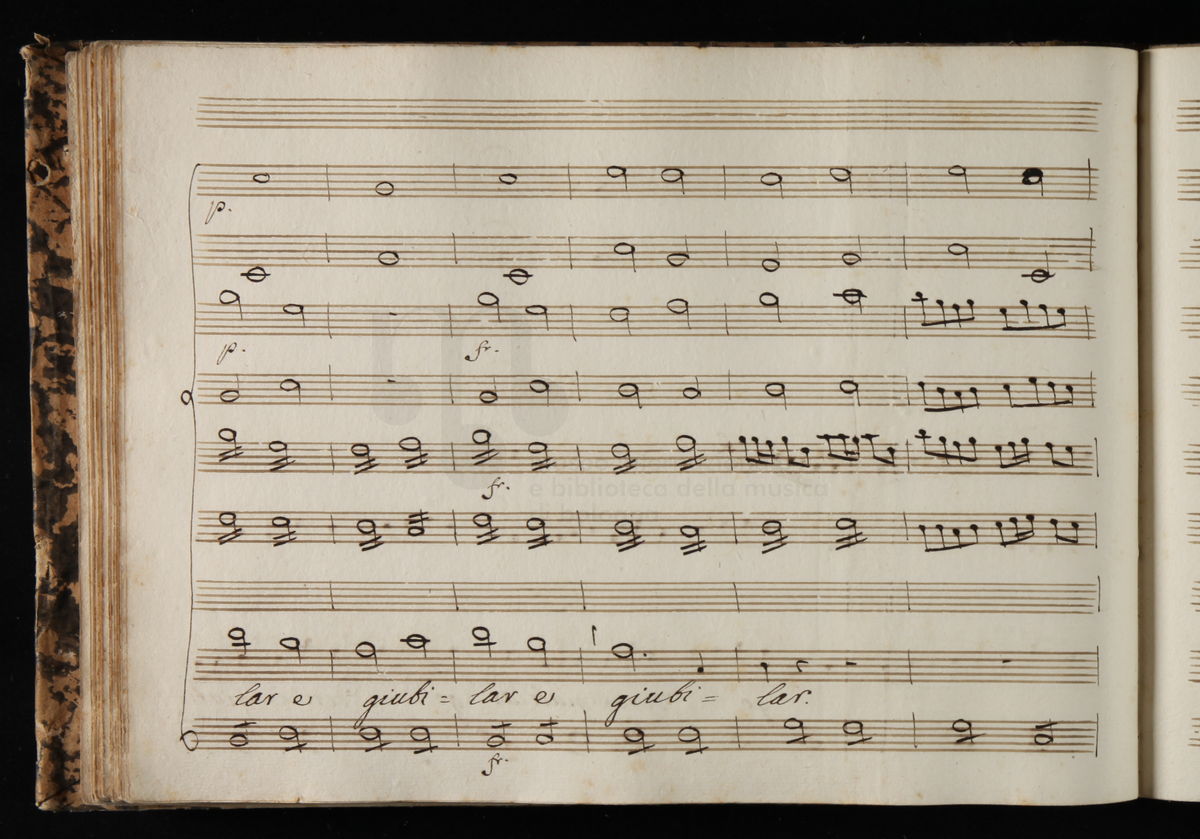 p.
p. fr.
fr.
e biblioteca della musica
lar e giubi = lar e giubi = lar.
fr.